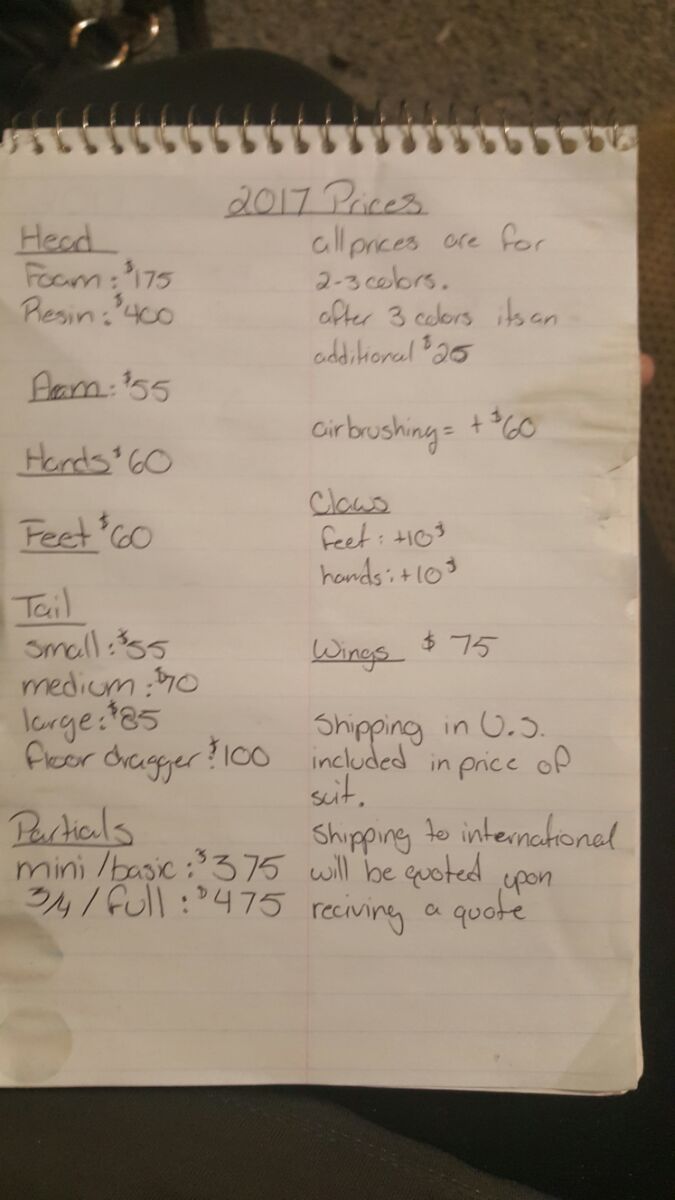 2017 Prices
Head
Foam: $175
Resin: $400
Aram: $55
Hands $60
Feet $60
Tail
small: $55
medium: $70
large: $85
floor dragger: $100
Partials
mini/basic: $375
3/4 / full: $475
all prices are for
2-3 colors.
after 3 colors its an
additional $25
airbrushing = + $60
Claws
feet: +10$
hands: +10$
Wings $75
Shipping in U.S.
included in price of
suit.
Shipping to international
will be quoted upon
reciving a quote